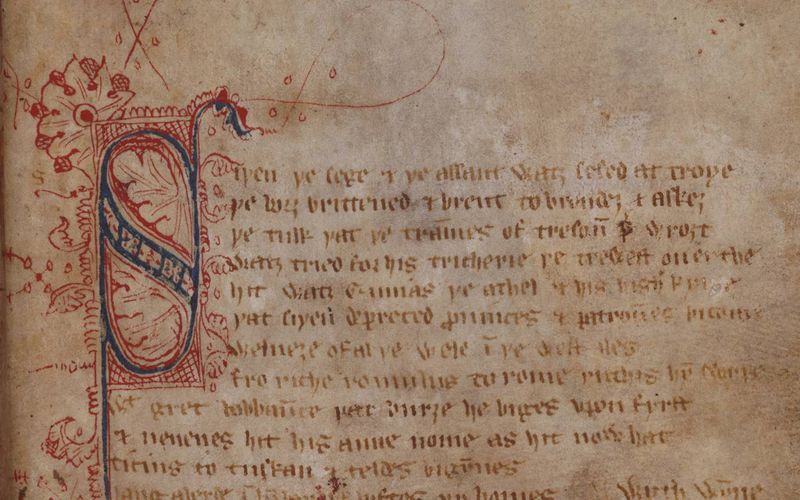 Siþen þe sege & þe assaut watȝ sesed at troye
þe borȝ brittened & brent to brondeȝ & askeȝ
þe tulk þat þe tram̄es of tresoū þ̄ wroȝt
watȝ tried for his tricherie þe trewest on erthe
hit watȝ Ennias þe athel & his highe kynde
þat siþen depreced prouinces & patroūes bicome
welneȝe of al þe wele ī þe west iles
fro riche romulus to rome ricchis hȳ swyþe
wt gret bobbaūce þat burȝe he biges vpon fyrst
& neuenes hit his aune nome as hit now hat
ticius to tuskan & teldes bigȳnes
langaberde lyftes vp homes